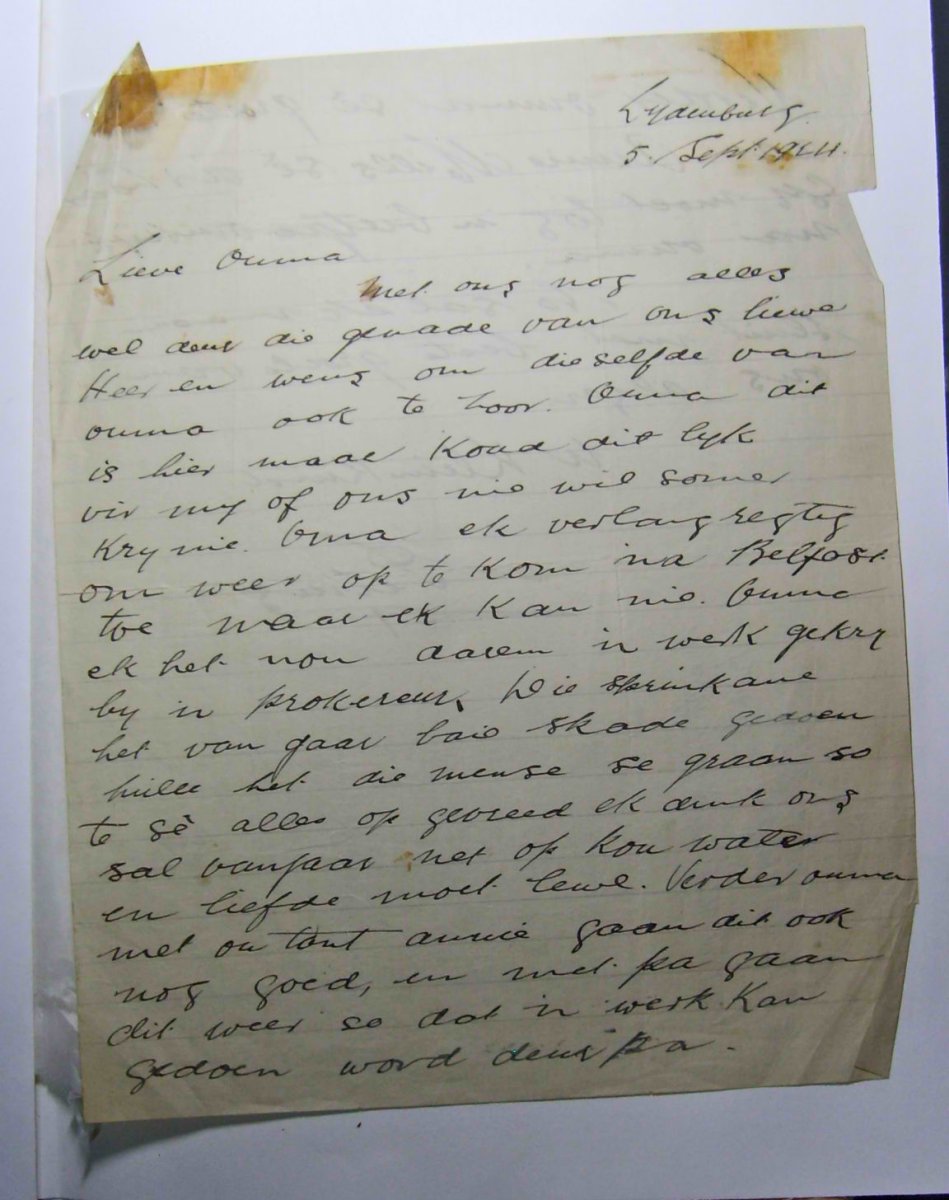 Lydenburg.
5. Sept. 1924.
Lieve Ouma
Met ons nog alles
wel deur die genade van ons liewe
Heer en wens om dieselfde van
ouma ook te hoor. Ouma dit
is hier maar koud dit lyk
vir my of ons nie wil somer
kry nie. Ouma ek verlang regtig
om weer op te kom na Belfast
toe maar ek kan nie. Ouma
ek het nou darem 'n werk gekry
by 'n prokereur. Die sprinkane
het van jaar baie skade gedoen
hulle het die mense se graan so
te sê alles op gevreed ek dink ons
sal vanjaar net op kou water
en liefde moet lewe. Verder ouma
met ou tant annie gaan dit ook
nog goed, en met pa gaan
dit weer so dat 'n werk kan
gedoen word deur pa.